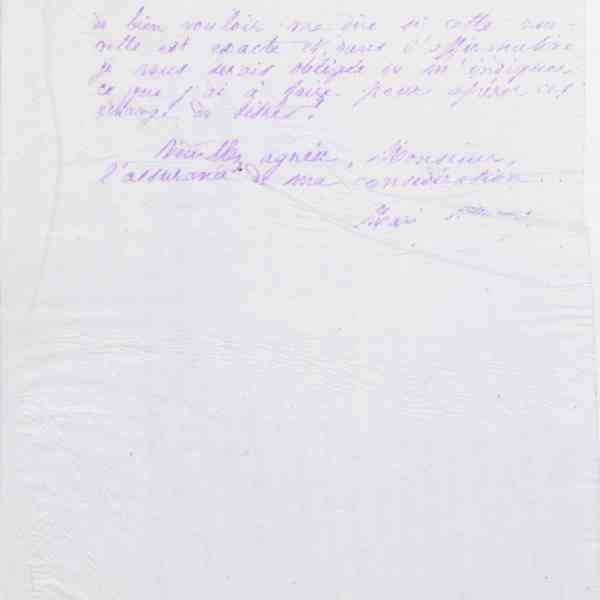 de bien vouloir me dire si cette nou-
velle est exacte et, dans l'affirmative
je vous serais obligée de m'indiquer
ce que j'ai à faire pour opérer cet
échange de titres.
Veuillez agréer, Monsieur,
l'assurance de ma considération.